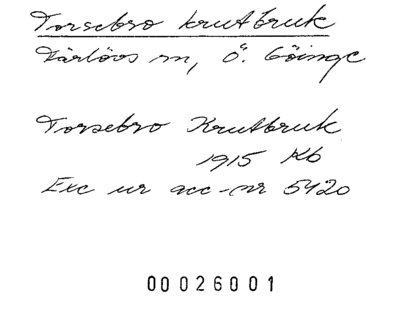 Torsebro krutbruk
Färlövs sn, Ö. Göinge
Torsebro Krutbruk
1915 Kb
Exc ur acc-nr 5420
00026001